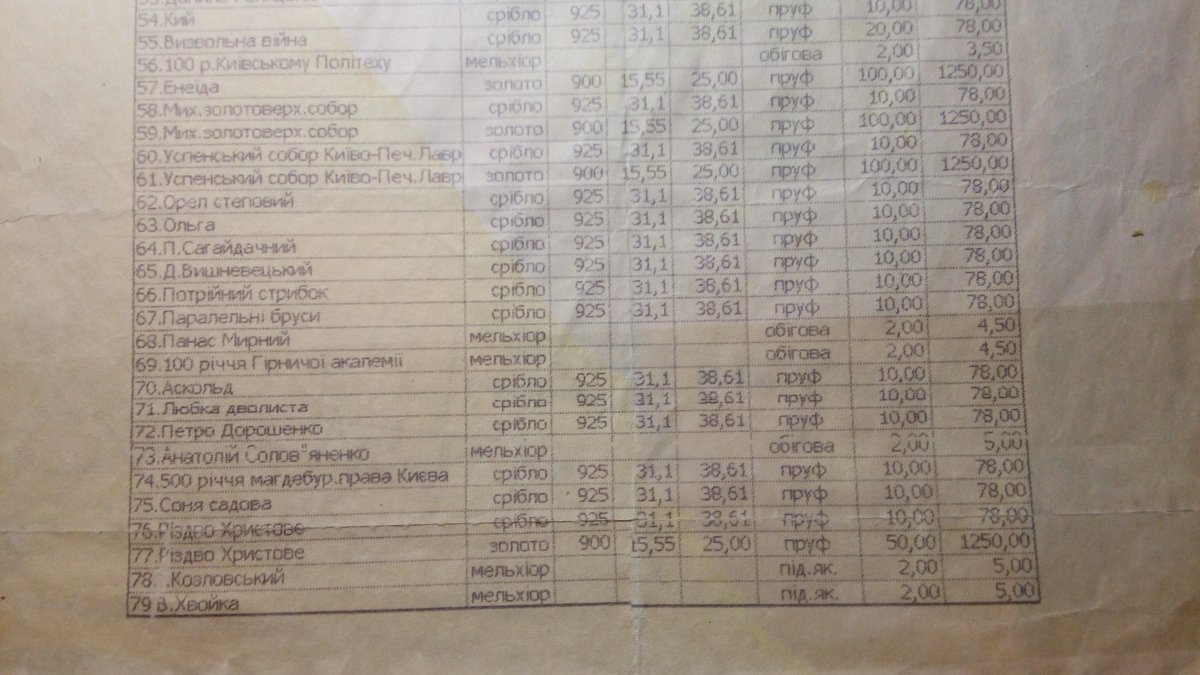 срібло 925 31,1 38,61 пруф 10,00 78,00
54.Кий срібло 925 31,1 38,61 пруф 10,00 78,00
55.Визвольна війна срібло 925 31,1 38,61 пруф 20,00 78,00
56.100 р.Київському Політеху мельхіор обігова 2,00 3,50
57.Енеїда золото 900 15,55 25,00 пруф 100,00 1250,00
58.Мих.золотоверх.собор срібло 925 31,1 38,61 пруф 10,00 78,00
59.Мих.золотоверх.собор золото 900 15,55 25,00 пруф 100,00 1250,00
60.Успенський собор Києво-Печ.Лавр срібло 925 31,1 38,61 пруф 10,00 78,00
61.Успенський собор Києво-Печ.Лавр золото 900 15,55 25,00 пруф 100,00 1250,00
62.Орел степовий срібло 925 31,1 38,61 пруф 10,00 78,00
63.Ольга срібло 925 31,1 38,61 пруф 10,00 78,00
64.П.Сагайдачний срібло 925 31,1 38,61 пруф 10,00 78,00
65.Д.Вишневецький срібло 925 31,1 38,61 пруф 10,00 78,00
66.Потрійний стрибок срібло 925 31,1 38,61 пруф 10,00 78,00
67.Паралельні бруси срібло 925 31,1 38,61 пруф 10,00 78,00
68.Панас Мирний мельхіор обігова 2,00 4,50
69.100 річчя Гірничої академії мельхіор обігова 2,00 4,50
70.Аскольд срібло 925 31,1 38,61 пруф 10,00 78,00
71.Любка дволиста срібло 925 31,1 38,61 пруф 10,00 78,00
72.Петро Дорошенко срібло 925 31,1 38,61 пруф 10,00 78,00
73.Анатолій Солов"яненко мельхіор обігова 2,00 5,00
74.500 річчя магдебур.права Києва срібло 925 31,1 38,61 пруф 10,00 78,00
75.Соня садова срібло 925 31,1 38,61 пруф 10,00 78,00
76.Різдво Христове срібло 925 31,1 38,61 пруф 10,00 78,00
77.Різдво Христове золото 900 15,55 25,00 пруф 50,00 1250,00
78. .Козловський мельхіор під.як. 2,00 5,00
79 В.Хвойка мельхіор під.як. 2,00 5,00